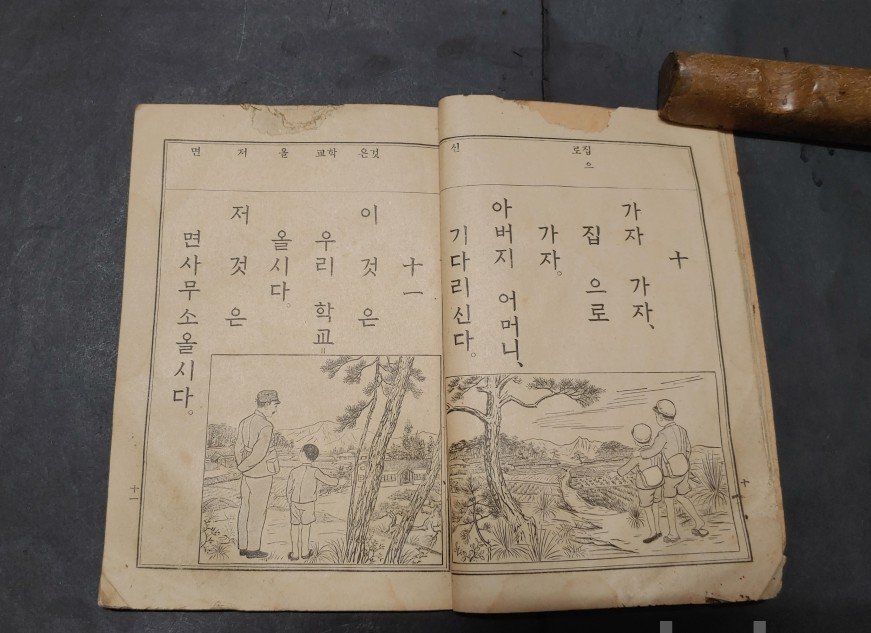 집으로
신
十
가자 가자、
집 으로
가자。
아버지 어머니、
기다리신다。
十
것은
학교
올
저
면
十一
이 것 은
우리 학교=
올시다。
저 것 은
면사무소올시다。
十一